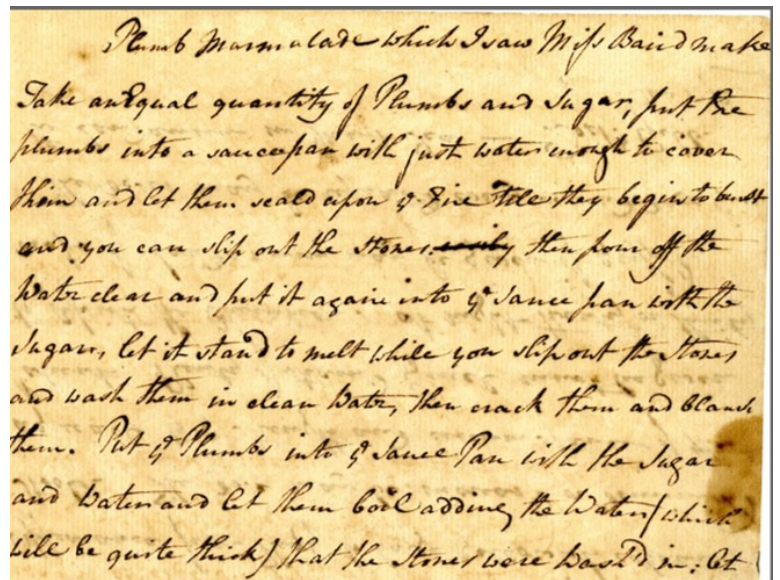 Plumb Marmalade which I saw Miss Baird make
Take an Equal quantity of Plumbs and Sugar, put the
plumbs into a saucepan with just water enough to cover
them and let them scald upon ye Fire till they begin to burst
and you can slip out the stones easily then pour off the
Water clear and put it again into ye Sauce pan with the
Sugar, let it stand to melt while you slip out the Stones
and wash them in clean Water, then crack them and blanch
them. Put ye Plumbs into ye Sauce Pan with the Sugar
and Water and let them boil adding the Water (which
will be quite thick) that the Stones were wash'd in; let